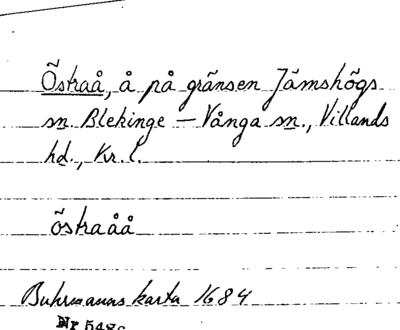 Östraå, å på gränsen Jämshögs
sn Blekinge – Vånga sn., Villands
hd., Kr. l.
östraåå
Buhrmanns karta 1684
Nr 548